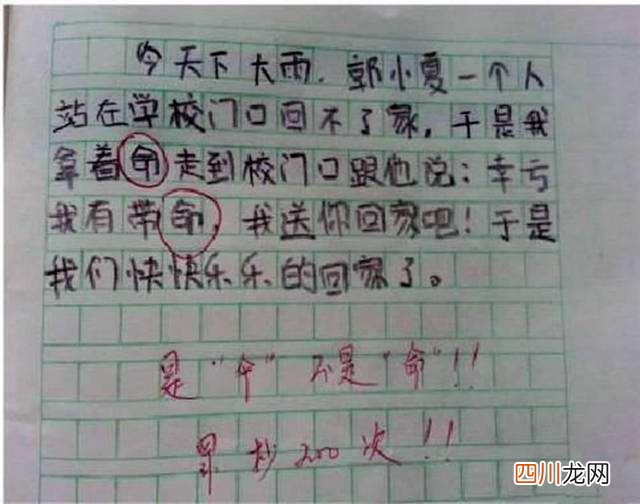 今天下大雨，郭小夏一个人
站在学校门口回不了家，于是我
拿着命走到校门口跟他说：幸亏
我有带命，我送你回家吧！于是
我们快快乐乐的回家了。
是“伞”不是“命”！！
抄200次！！
四川龙网